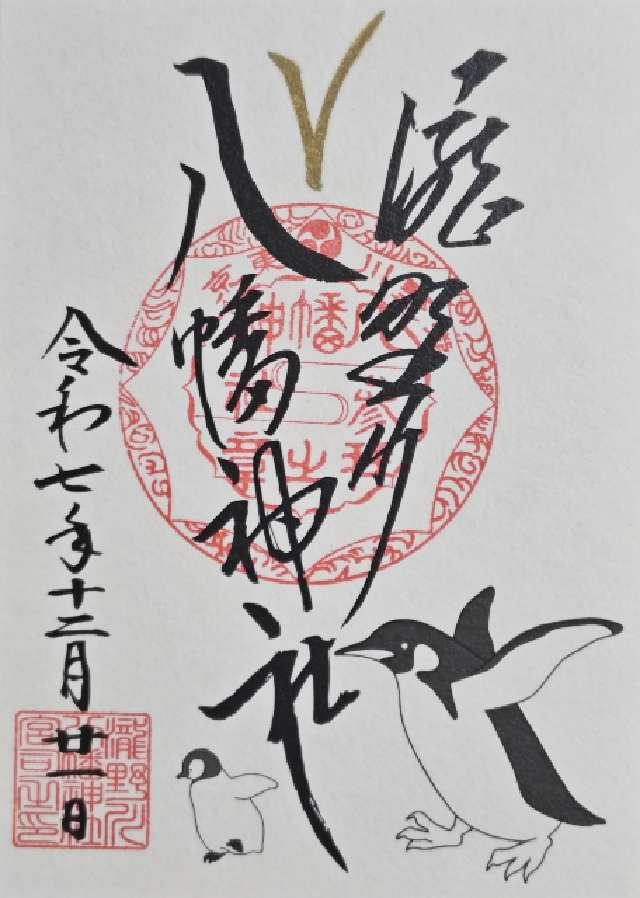 瀧野川
八幡神社
令和七年十二月廿一日
瀧野川
八幡神社
宮司之印